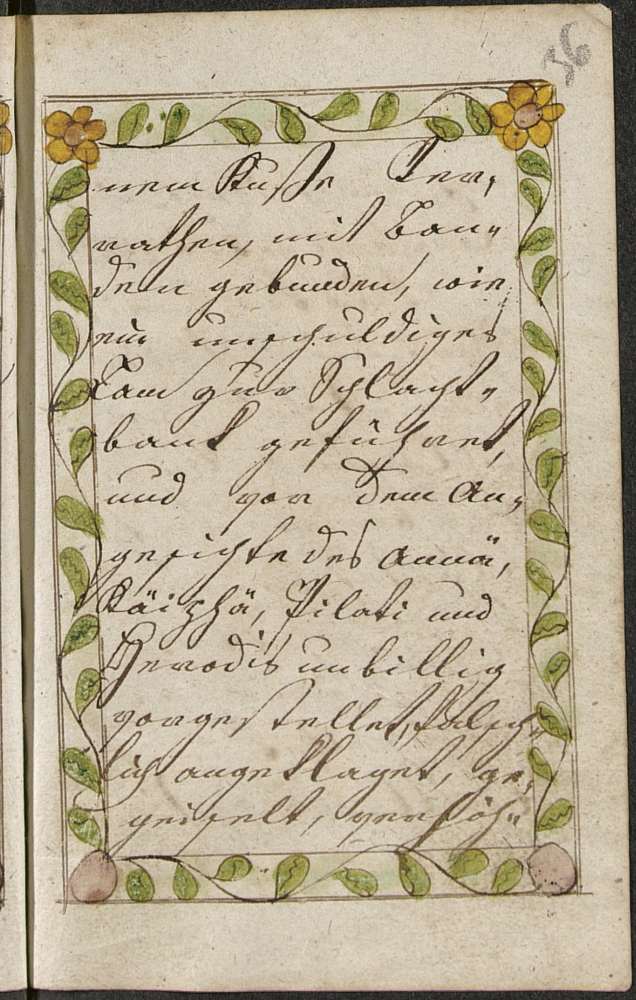 nem Kuße Ver,
rathen, mit Ban„
den gebunden, wie
ein unschuldiges
Lam zur Schlacht„
bank geführet,
und vor dem An„
gesichte des Annä,
Käiphä, Pilati und
Herodis unbillig
vorgestellet, falsch„
lich angeklaget, ge„
geiselt, verhöh„